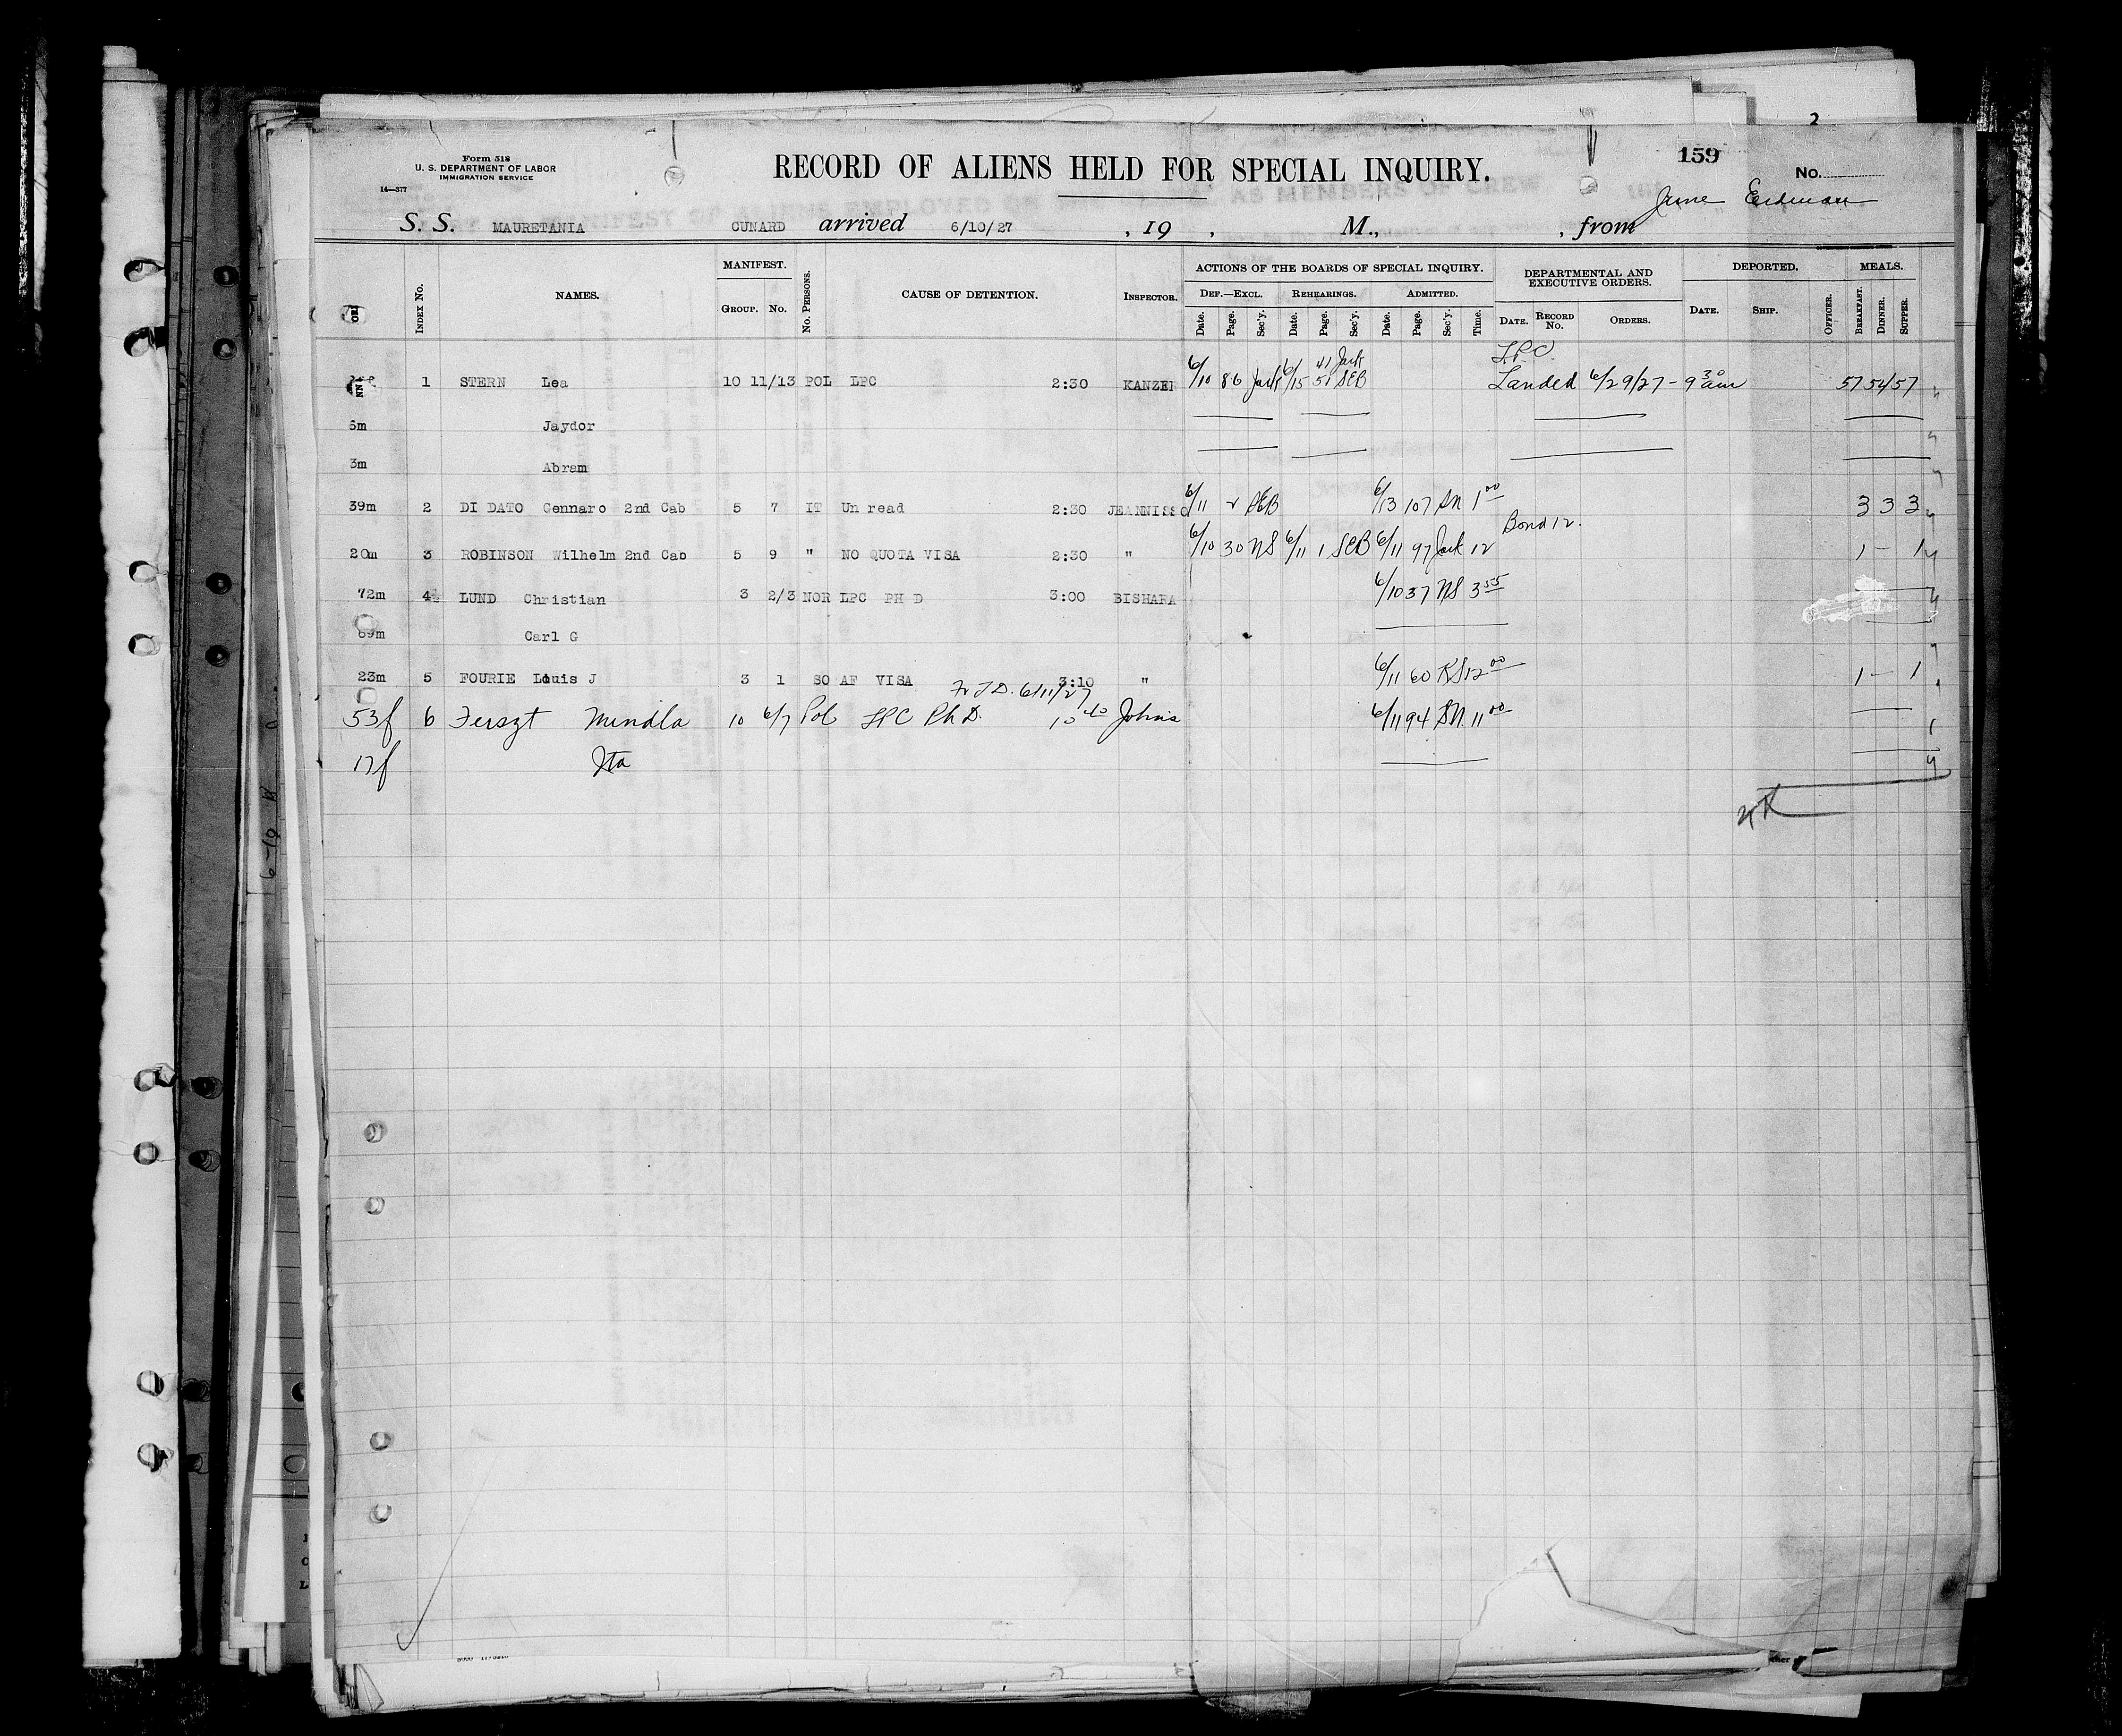 2
Form 518
U. S. DEPARTMENT OF LABOR
IMMIGRATION SERVICE
14—377
RECORD OF ALIENS HELD FOR SPECIAL INQUIRY.
159
No.
June Erdman
S. S. MAURETANIA CUNARD arrived 6/10/27 , 19 , M., , from
Index No. NAMES. MANIFEST. Group. No. No. Persons. CAUSE OF DETENTION. Inspector. ACTIONS OF THE BOARDS OF SPECIAL INQUIRY. DEPARTMENTAL AND EXECUTIVE ORDERS. DEPORTED. MEALS.
Def.—Excl. Rehearings. Admitted.
Date. Page. Sec'y. Date. Page. Sec'y. Date. Page. Sec'y. Time. Date. Record No. Orders. Date. Ship. Officer. Breakfast. Dinner. Supper.
41 Jack LPC
1 STERN Lea 10 11/13 POL LPC 2:30 KANZER 6/10 86 Jack 6/15 51 SEB Landed 6/29/27 - 9 30 am 57 54 57
6m Jaydor
3m Abram
39m 2 DI DATO Gennaro 2nd Cab 5 7 IT Un read 2:30 JEANNISSO 6/11 2 SEB 6/13 107 SN 1 00 3 3 3
Bond 12.
20m 3 ROBINSON Wilhelm 2nd Cab 5 9 " NO QUOTA VISA 2:30 " 6/10 30 NS 6/11 1 SEB 6/11 97 Jack 12 1 - 1
72m 4 LUND Christian 3 2/3 NOR LPC PH D 3:00 BISHARA 6/10 37 NS 3 55
69m Carl G
23m 5 FOURIE Louis J 3 1 SO AF VISA 3:10 " 6/11 60 KS 12 00 1 - 1
Fr T D. 6/11/27
53f 6 Ferszt Mindla 10 6/7 Pol LPC Ph D. 10 40 Johns 6/11 94 SN. 11 00
17f Ita
6-10